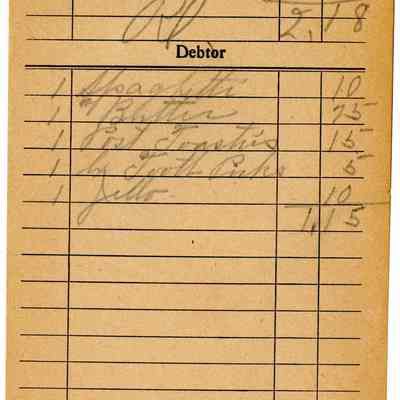 Pd 2.18
Debtor
1 Spaghetti 10
1 " Butter 75
1 Post Toasties 15
1 bx Tooth Picks 5
1 Jello 10
1.15